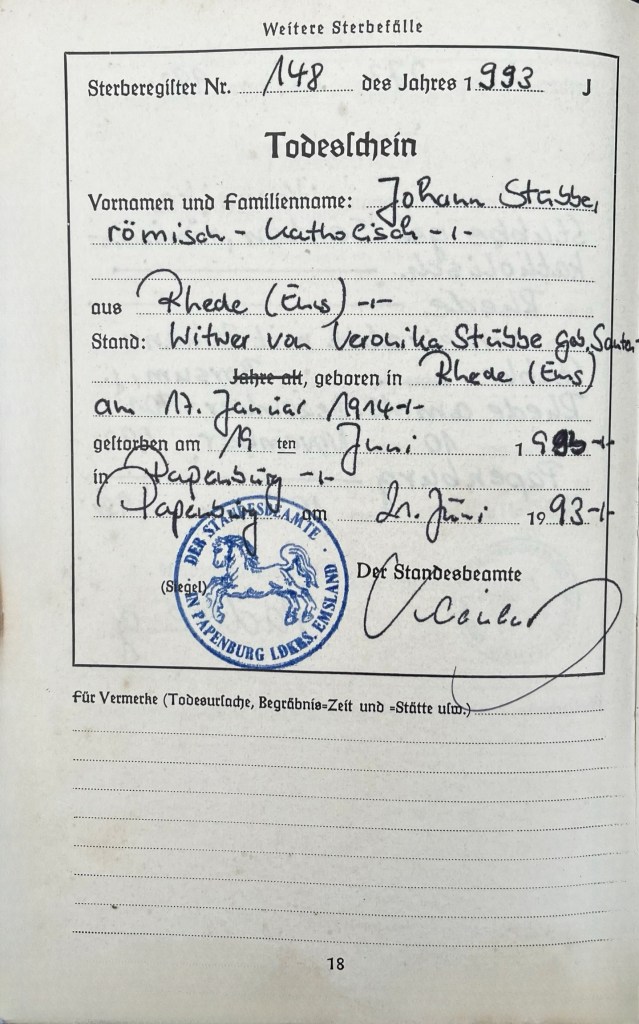 Weitere Sterbefälle
Sterberegister Nr. 148 des Jahres 1993 J
Todesschein
Vornamen und Familienname: Johann Stübbe,
römisch-katholisch -/-
aus Rhede (Ems) -/-
Stand: Witwer von Veronika Stübbe geb.
Jahre alt, geboren in Rhede (Ems)
am 17. Januar 1914-/-
gestorben am 19 ten Juni 1993-/-
in Papenburg -/-
Papenburg am 21. Juni 1993-/-
DER STANDESBEAMTE
IN PAPENBURG LDKRS. EMSLAND
(Siegel)
Der Standesbeamte
Für Vermerke (Todesursache, Begräbnis=Zeit und =Stätte usw.)
18